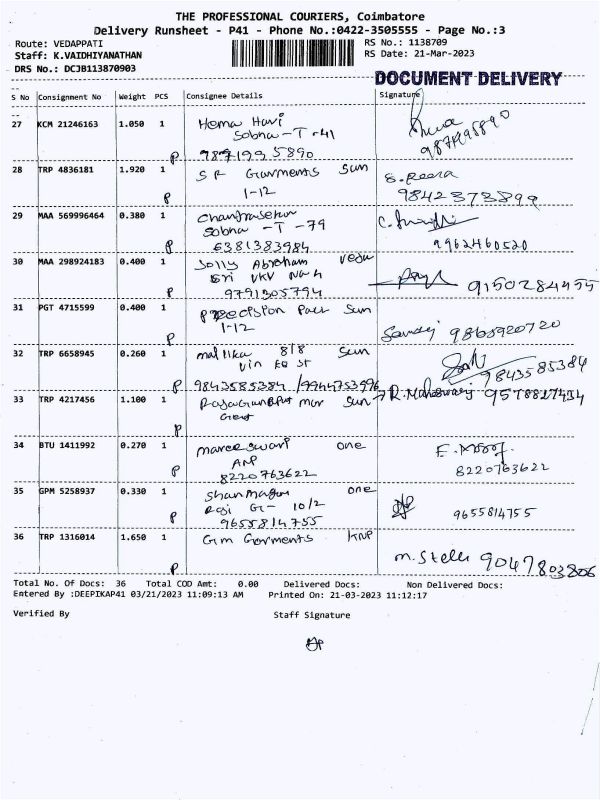 THE PROFESSIONAL COURIERS, Coimbatore
Delivery Runsheet - P41 - Phone No.:0422-3505555 - Page No.:3
Route: VEDAPPATI
RS No.: 1138709
Staff: K.VAIDHIYANATHAN
RS Date: 21-Mar-2023
DRS No.: DCJB113870903
DOCUMENT DELIVERY
S No Consignment No Weight PCS Consignee Details Signature
27 KCM 21246163 1.050 1 Hema Hari
Sobha -T -41
P 9871995890 9871995890
28 TRP 4836181 1.920 1 S R Garments Sun
P 1-12 9842373899
29 MAA 569996464 0.380 1 Chandrasekar
Sobha -T -79
P 6381383984 9962460520
30 MAA 298924183 0.400 1 Jolly Abraham Veda
Sri VKV
P 9791305794 9150284455
31 PGT 4715599 0.400 1 Sun
P 1-12 9865920720
32 TRP 6658945 0.260 1 mallika 8/8 Sun
st
P 9843585384 /9944753996 9843585384
33 TRP 4217456 1.100 1 Sun R. Maheswari 9578827454
P
34 BTU 1411992 0.270 1 one
P 8220763622 8220763622
35 GPM 5258937 0.330 1 one
10/2
P 9655814755 9655814755
36 TRP 1316014 1.650 1 Gm Garments KNP
P m. Stella 9047803806
Total No. Of Docs: 36 Total COD Amt: 0.00 Delivered Docs: Non Delivered Docs:
Entered By :DEEPIKAP41 03/21/2023 11:09:13 AM Printed On: 21-03-2023 11:12:17
Verified By Staff Signature